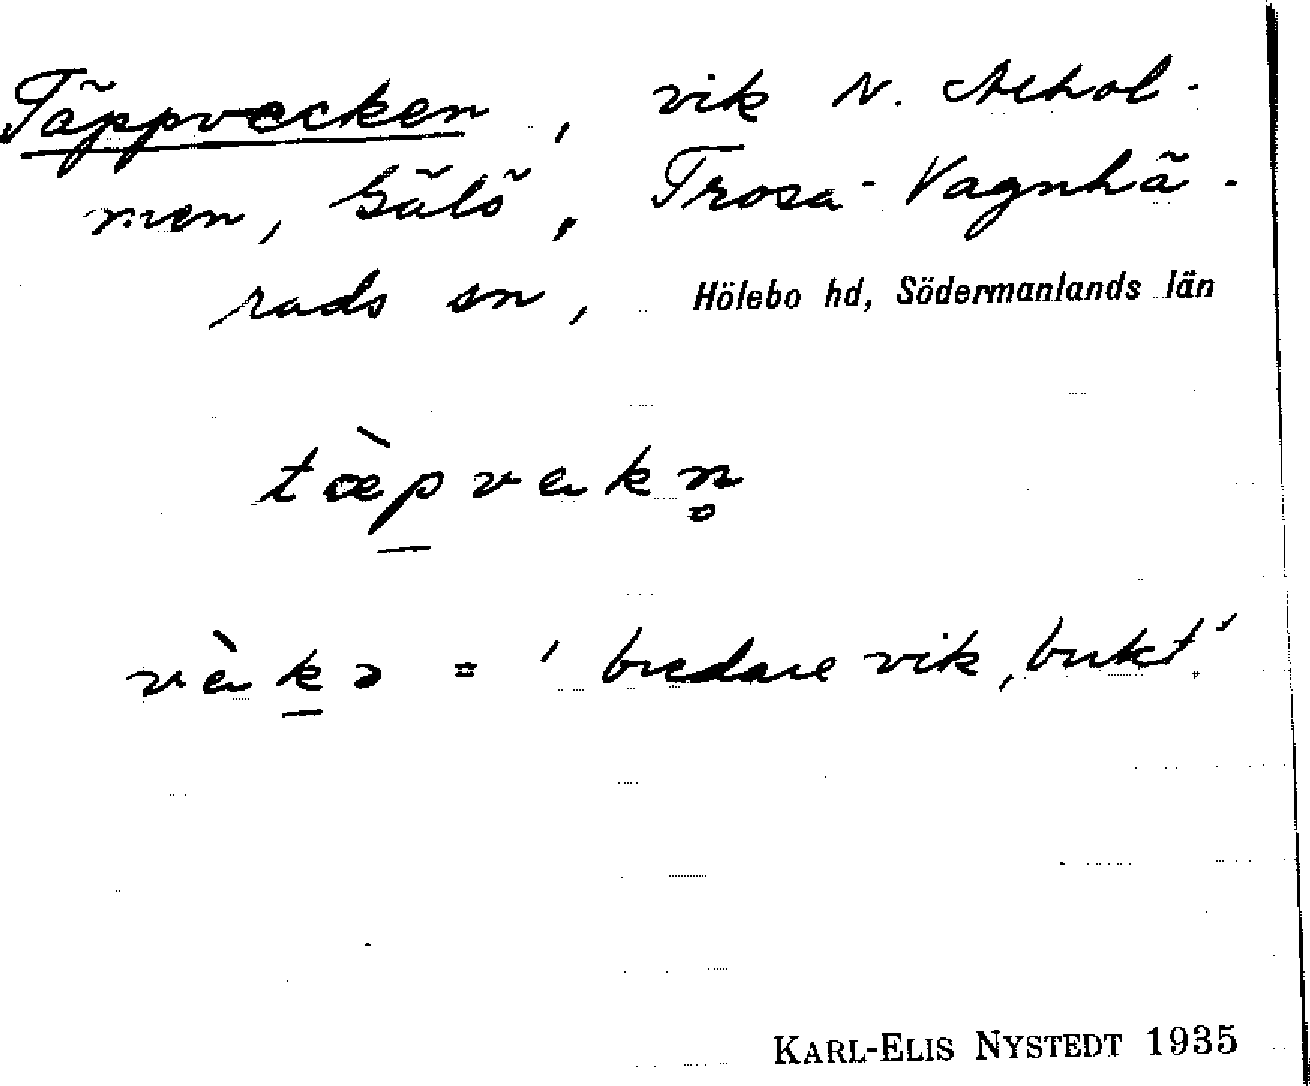 Täppvecken, vik N. Alhol-
men, Gälö, Trosa-Vagnhä-
rads sn, Hölebo hd, Södermanlands län
tæ̀pvekn̥
vèkə = 'bredare vik, bukt'
KARL-ELIS NYSTEDT 1935